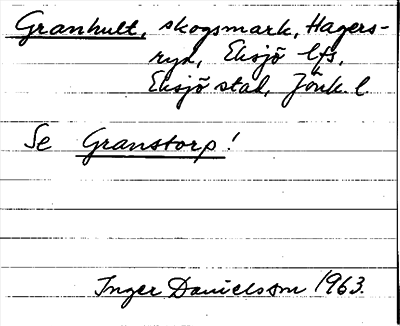 Granhult, skogsmark, Hagers-
ryd, Eksjö lfs,
Eksjö stad, Jönk. l.
Se Granstorp!
Inger Danielsson 1963.